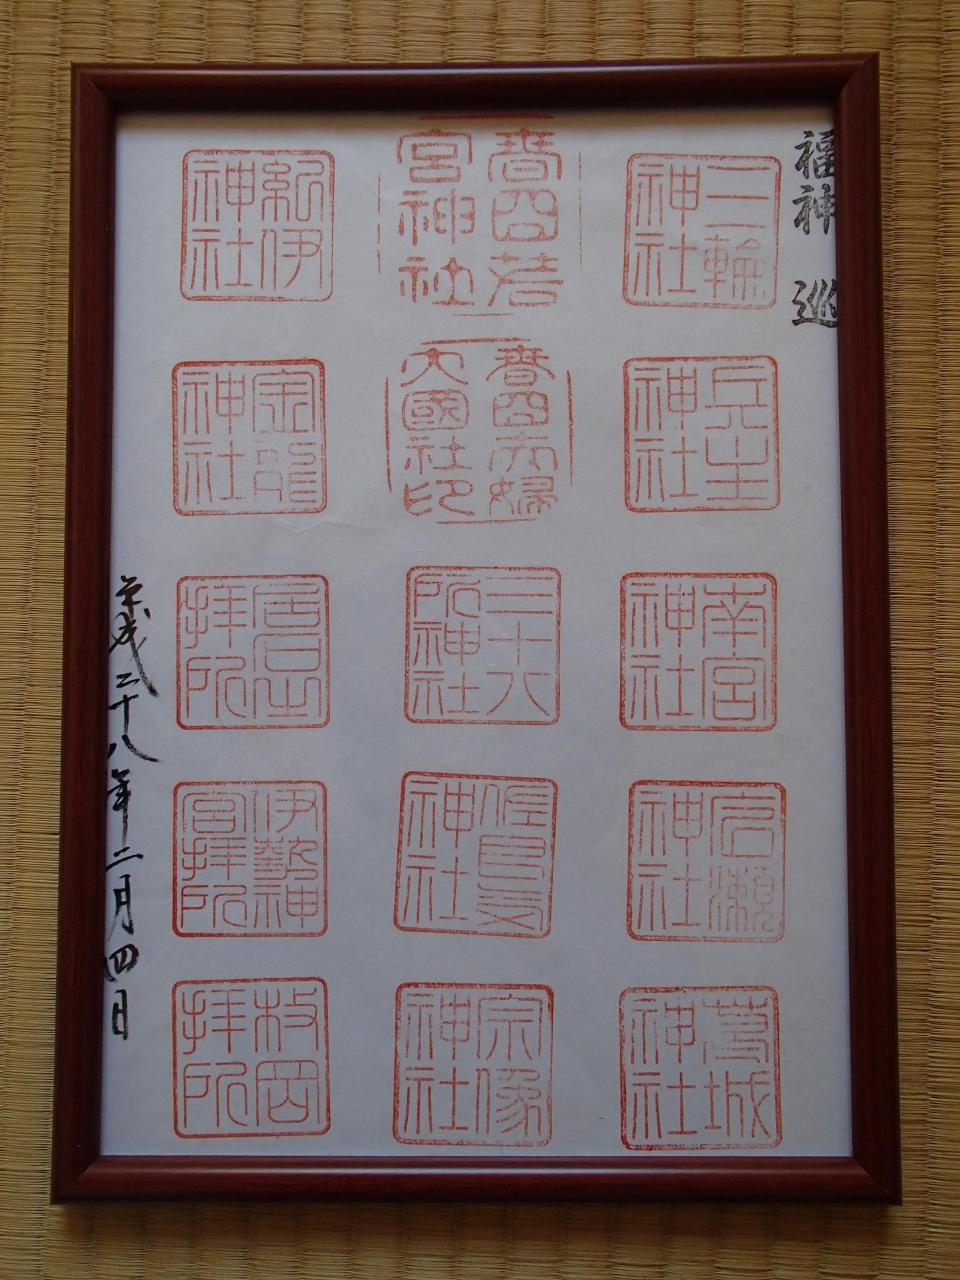 福神 巡
三輪神社
兵主神社
南宮神社
広瀬神社
葛城神社
春日若宮神社
春日夫婦大國社印
三十八所神社
佐良気神社
宗像神社
紀伊神社
金龍神社
拝所
伊勢神宮拝所
枚岡拝所
平成二十八年二月四日